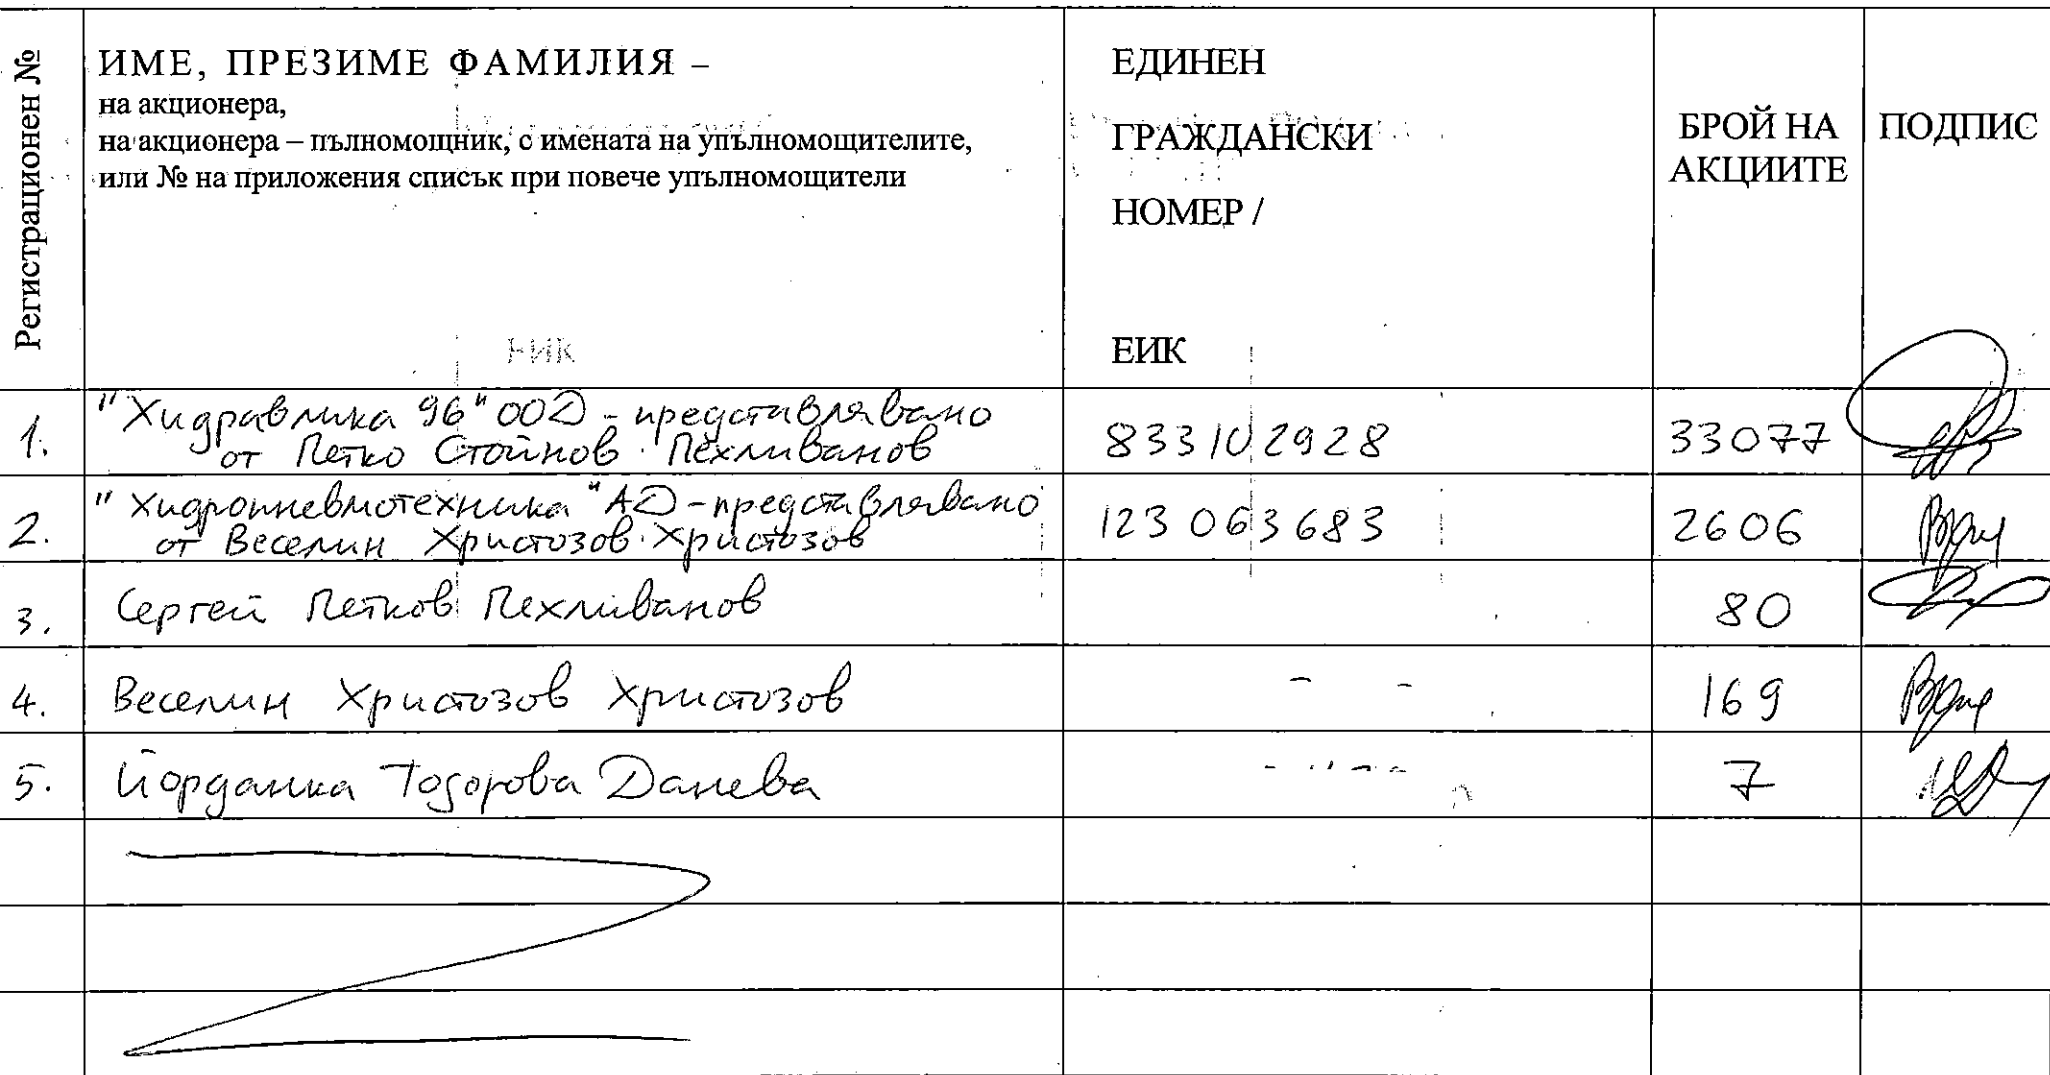 Регистрационен №
ИМЕ, ПРЕЗИМЕ ФАМИЛИЯ –
на акционера,
на акционера – пълномощник, с имената на упълномощителите,
или № на приложения списък при повече упълномощители
ЕДИНЕН
ГРАЖДАНСКИ
НОМЕР /
ЕИК
БРОЙ НА
АКЦИИТЕ
ПОДПИС
1. "Хидравлика 96" ООД - представлявано
от Петко Стойнов Пехливанов
833102928
33077
2. "Хидропневмотехника" АД - представлявано
от Веселин Христозов Христозов
123063683
2606
3. Сергей Петков Пехливанов
80
4. Веселин Христозов Христозов
169
5. Йорданка Тодорова Данева
7